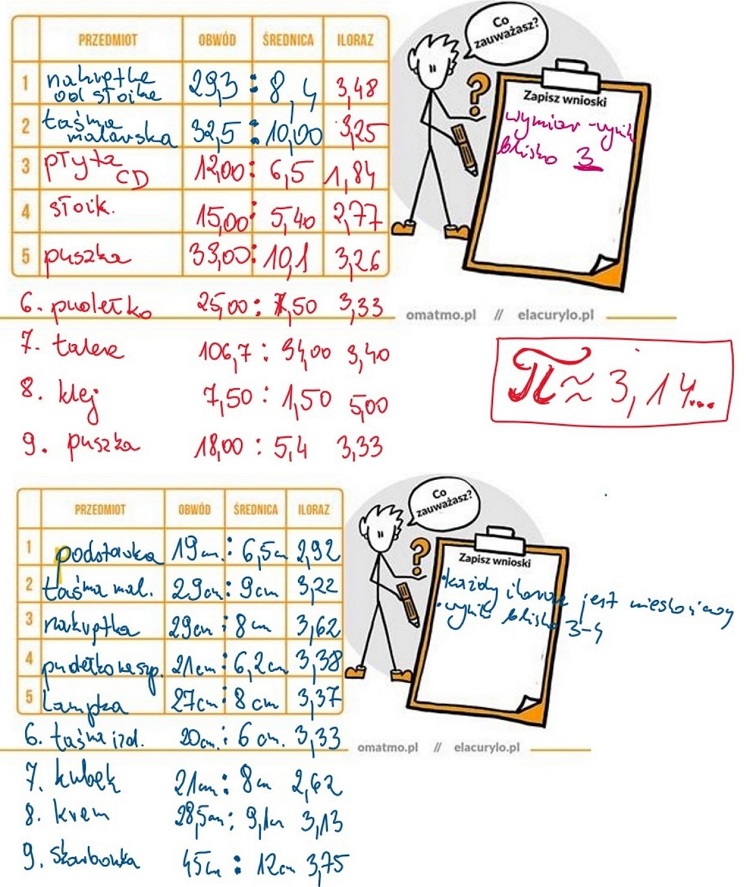 PRZEDMIOT OBWÓD ŚREDNICA ILORAZ
1 nakrętka od słoika 29,3 : 8,4 3,48
2 taśma malarska 32,5 : 10,00 3,25
3 płyta CD 12,00 : 6,5 1,84
4 słoik. 15,00 : 5,40 2,77
5 puszka 33,00 : 10,1 3,26
6. pudełko 25,00 : 7,50 3,33
7. talerz 106,7 : 31,00 3,40
8. klej 7,50 : 1,50 5,00
9. puszka 18,00 : 5,4 3,33
Co zauważasz?
Zapisz wnioski
wymiar - wynik
blisko 3
omatmo.pl // elacurylo.pl
π ≈ 3,14...
PRZEDMIOT OBWÓD ŚREDNICA ILORAZ
1 podstawka 19cm : 6,5cm 2,92
2 taśma mal. 29cm : 9cm 3,22
3 nakrętka 29cm : 8cm 3,62
4 pudełko na 21cm : 6,2cm 3,38
5 Lampka 27cm : 8cm 3,37
6. taśma izol. 20cm : 6cm. 3,33
7. kubek 21cm : 8cm 2,62
8. krem 28,5cm : 9,1cm 3,13
9. skarbonka 45cm : 12cm 3,75
Co zauważasz?
Zapisz wnioski
• każdy iloraz jest nieskończony
• wynik blisko 3-4
omatmo.pl // elacurylo.pl